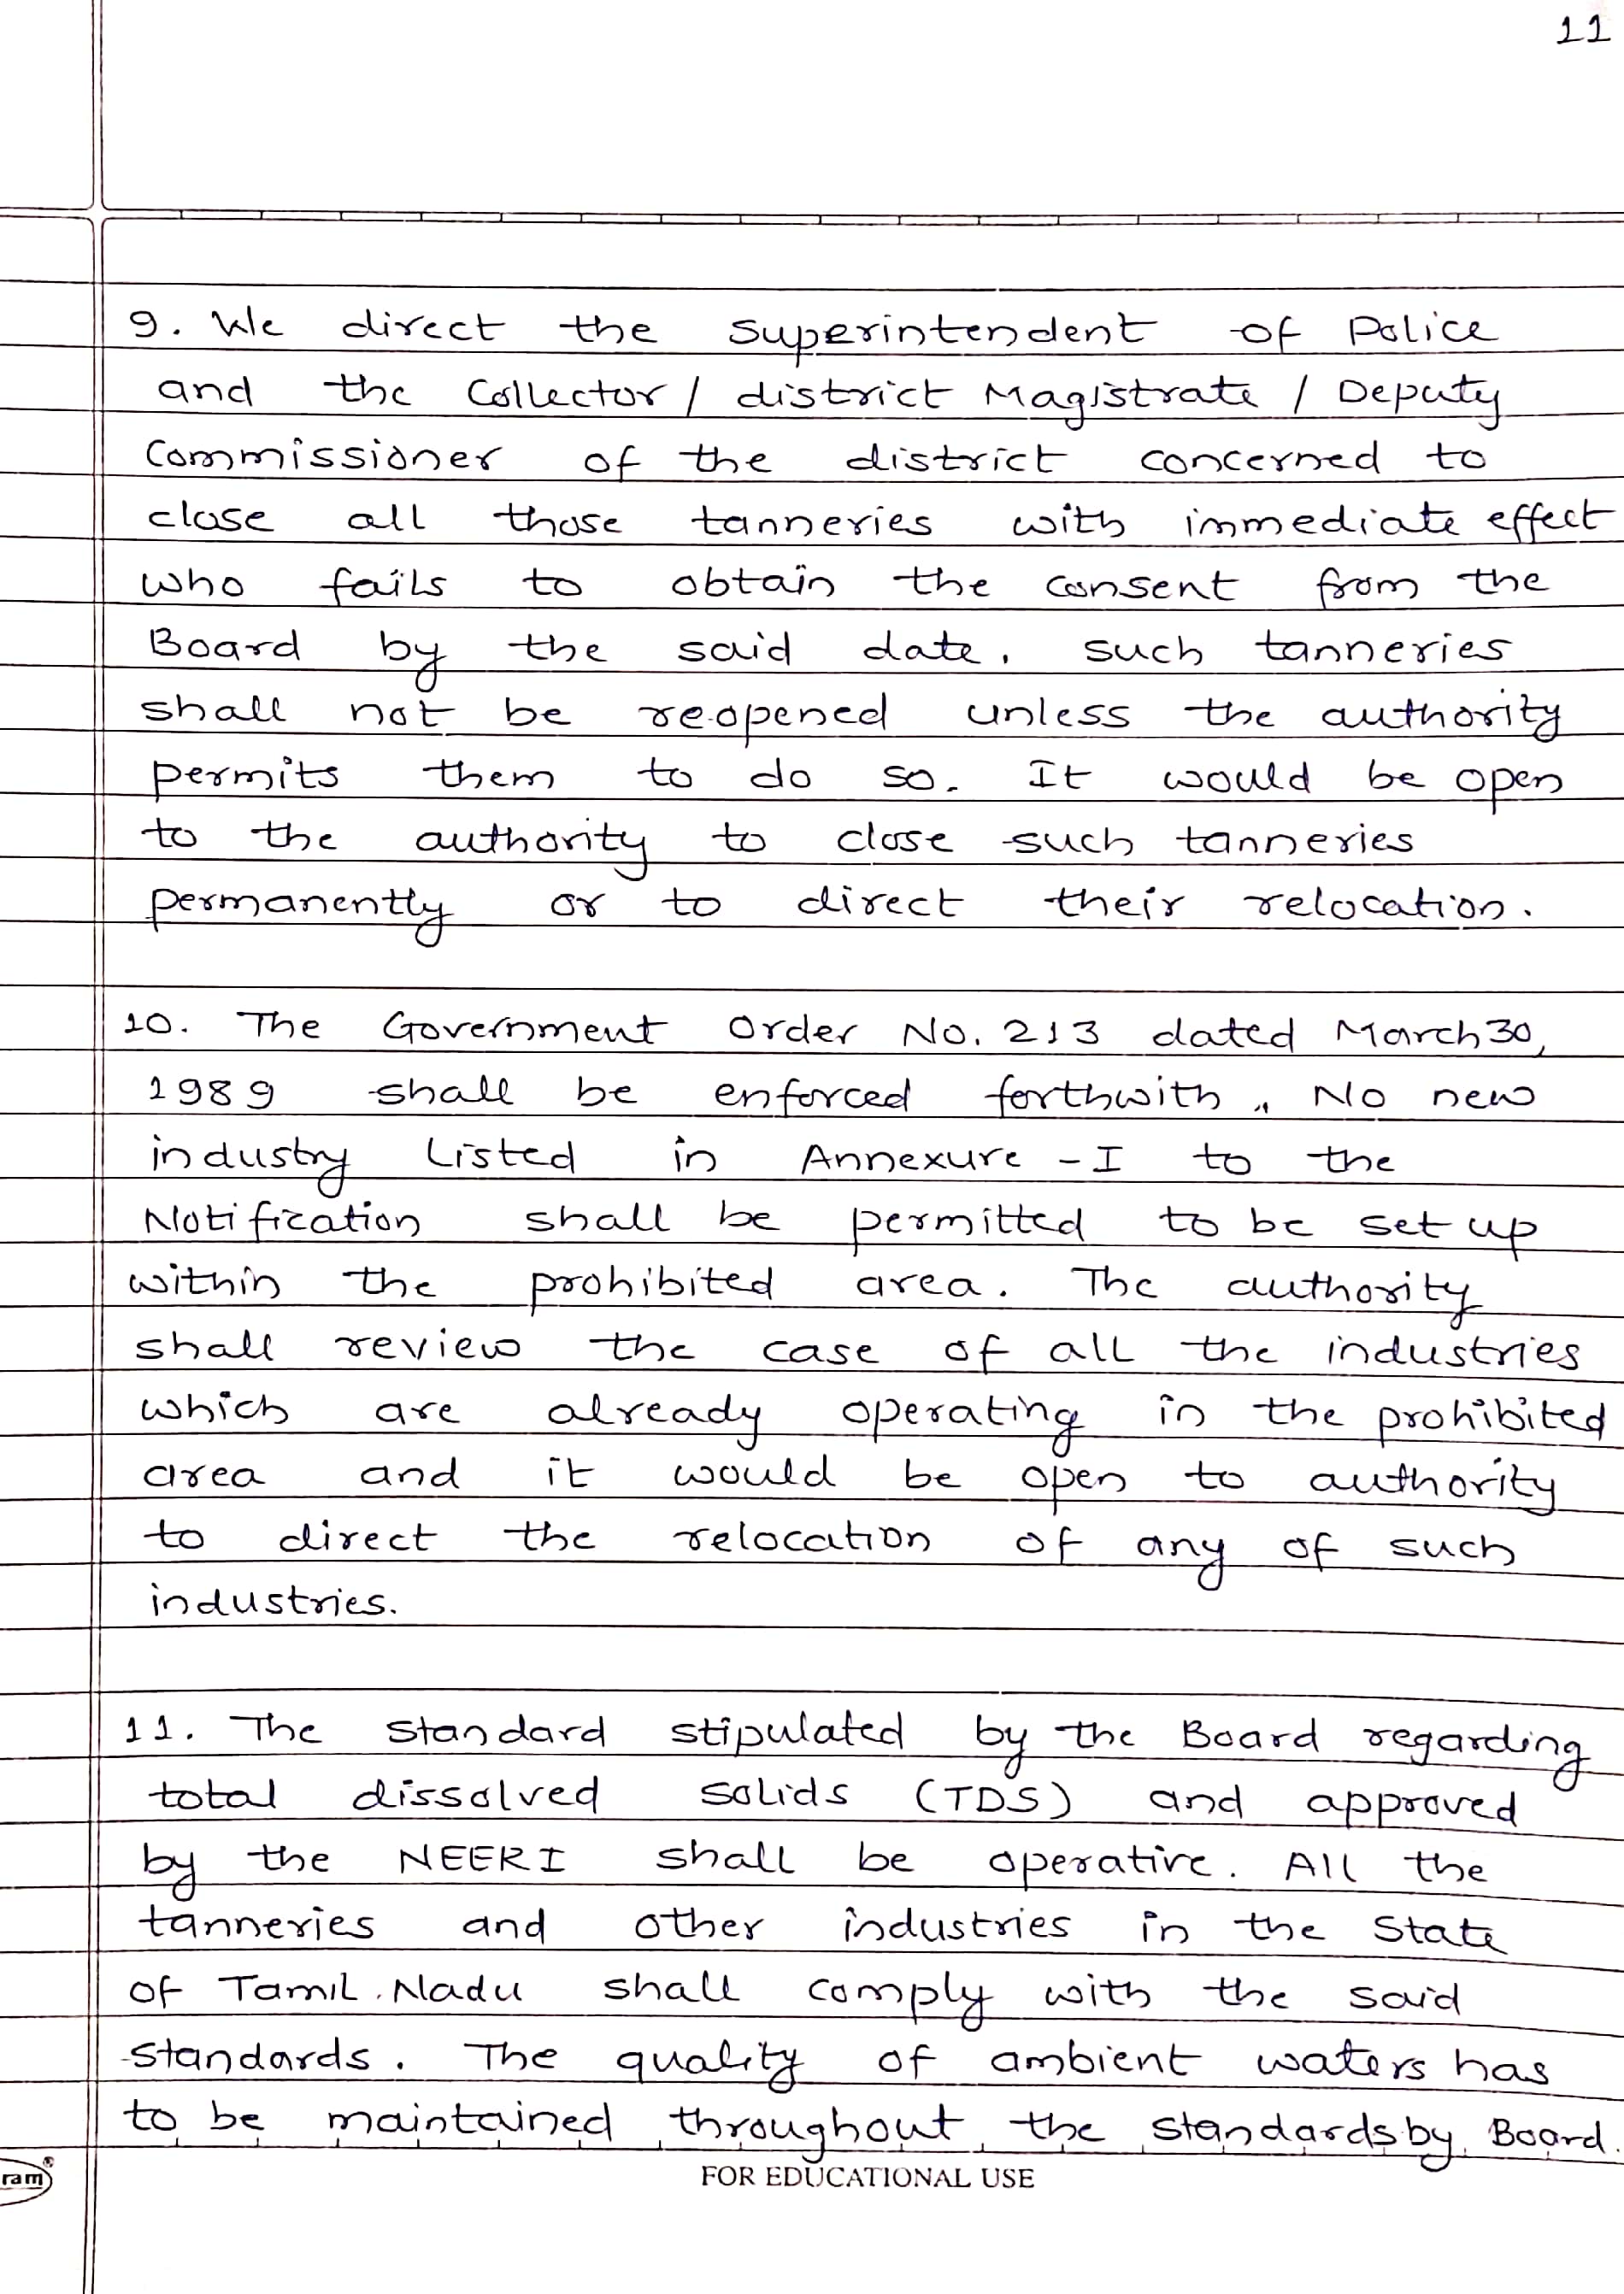 11
9. We direct the superintendent of Police
and the Collector / district Magistrate / Deputy
Commissioner of the district concerned to
close all those tanneries with immediate effect
who fails to obtain the consent from the
Board by the said date. such tanneries
shall not be reopened unless the authority
permits them to do so. It would be open
to the authority to close such tanneries
permanently or to direct their relocation.
10. The Government Order No. 213 dated March 30,
1989 shall be enforced forthwith. No new
industry Listed in Annexure - I to the
Notification shall be permitted to be set up
within the prohibited area. The authority
shall review the case of all the industries
which are already operating in the prohibited
area and it would be open to authority
to direct the relocation of any of such
industries.
11. The standard stipulated by the Board regarding
total dissolved solids (TDS) and approved
by the NEERI shall be operative. All the
tanneries and other industries in the State
of Tamil Nadu shall comply with the said
standards. The quality of ambient waters has
to be maintained throughout the standards by Board.
ram
FOR EDUCATIONAL USE